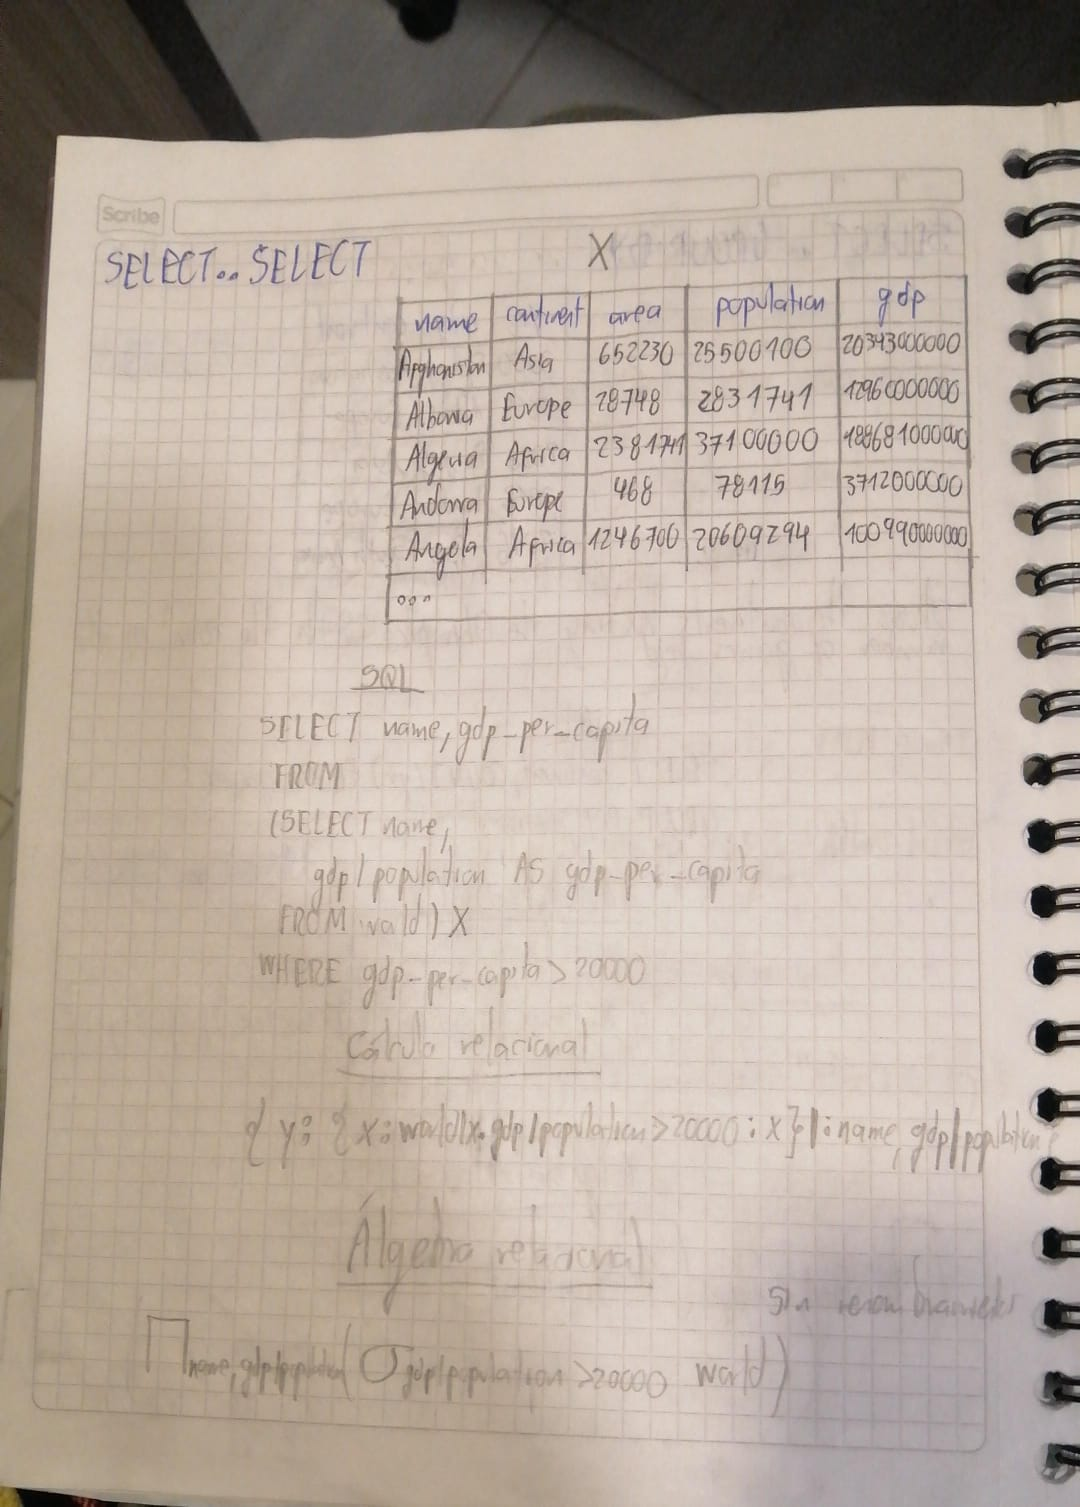 Scribe
SELECT.. SELECT
X
name continent area population gdp
Afghanistan Asia 652230 25500100 20343000000
Albania Europe 28748 2831741 12960000000
Algeria Africa 2381741 37100000 188681000000
Andorra Europe 468 78115 3712000000
Angola Africa 1246700 20609294 100990000000
...
SQL
SELECT name, gdp_per_capita
FROM
(SELECT name,
gdp/population AS gdp_per_capita
FROM world) X
WHERE gdp_per_capita > 20000
Cálculo relacional
{ y: { x: world | x.gdp/population > 20000 : x} | : name, gdp/population}
Álgebra relacional
Sin
∏ name, gdp/population (σ gdp/population > 20000 world)